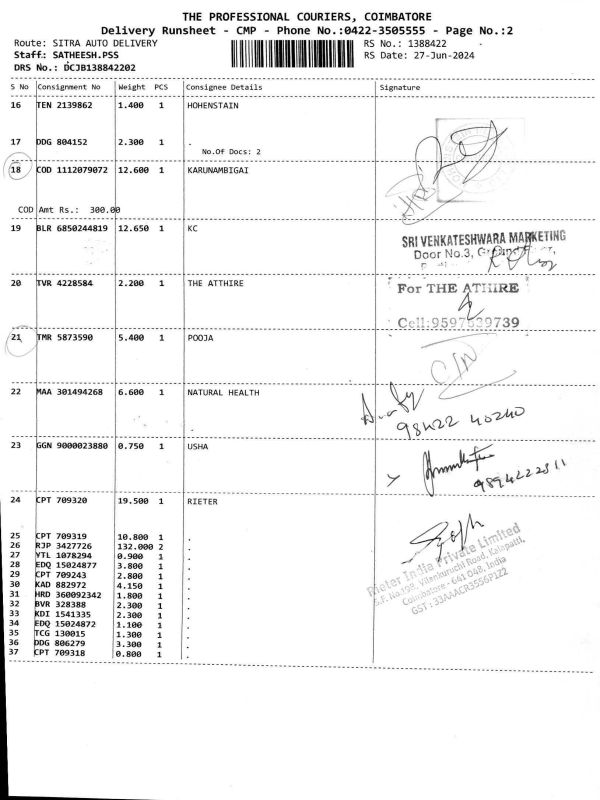 THE PROFESSIONAL COURIERS, COIMBATORE
Delivery Runsheet - CMP - Phone No.:0422-3505555 - Page No.:2
Route: SITRA AUTO DELIVERY RS No.: 1388422
Staff: SATHEESH.PSS RS Date: 27-Jun-2024
DRS No.: DCJB138842202
S No Consignment No Weight PCS Consignee Details Signature
16 TEN 2139862 1.400 1 HOHENSTAIN
17 DDG 804152 2.300 1 .
No.Of Docs: 2
18 COD 1112079072 12.600 1 KARUNAMBIGAI
COD Amt Rs.: 300.00
19 BLR 6850244819 12.650 1 KC
SRI VENKATESHWARA MARKETING
Door No.3,
20 TVR 4228584 2.200 1 THE ATTHIRE
For THE ATHIRE
Cell:9597539739
21 TMR 5873590 5.400 1 POOJA
22 MAA 301494268 6.600 1 NATURAL HEALTH
98422 40240
23 GGN 9000023880 0.750 1 USHA
9894222311
24 CPT 709320 19.500 1 RIETER
25 CPT 709319 10.800 1 .
26 RJP 3427726 132.000 2 .
27 YTL 1078294 0.900 1 .
28 EDQ 15024877 3.800 1 .
29 CPT 709243 2.800 1 .
30 KAD 882972 4.150 1 .
31 HRD 360092342 1.800 1 .
32 BVR 328388 2.300 1 .
33 KDI 1541335 2.300 1 .
34 EDQ 15024872 1.100 1 .
35 TCG 130015 1.300 1 .
36 DDG 806279 3.300 1 .
37 CPT 709318 0.800 1 .
Rieter India Private Limited
S.F. No.198, Vilankuruchi Road, Kalapatti,
Coimbatore - 641 048, India
GST : 33AAACR3556P1Z2